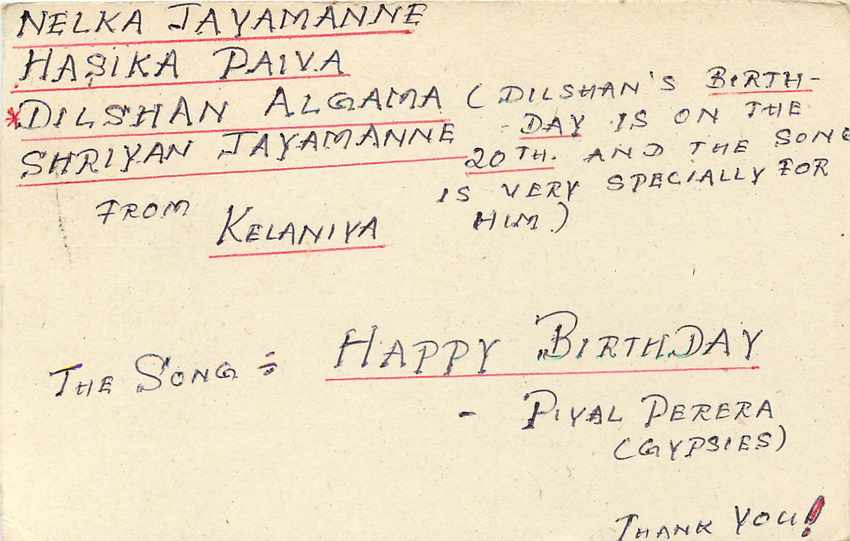 NELKA JAYAMANNE
HASIKA PAIVA
*DILSHAN ALGAMA (DILSHAN'S BIRTH-
DAY IS ON THE
SHRIYAN JAYAMANNE 20TH. AND THE SONG
IS VERY SPECIALLY FOR
HIM.)
FROM
KELANIYA
THE SONG ÷ HAPPY BIRTHDAY
- PIYAL PERERA
(GYPSIES)
THANK YOU!